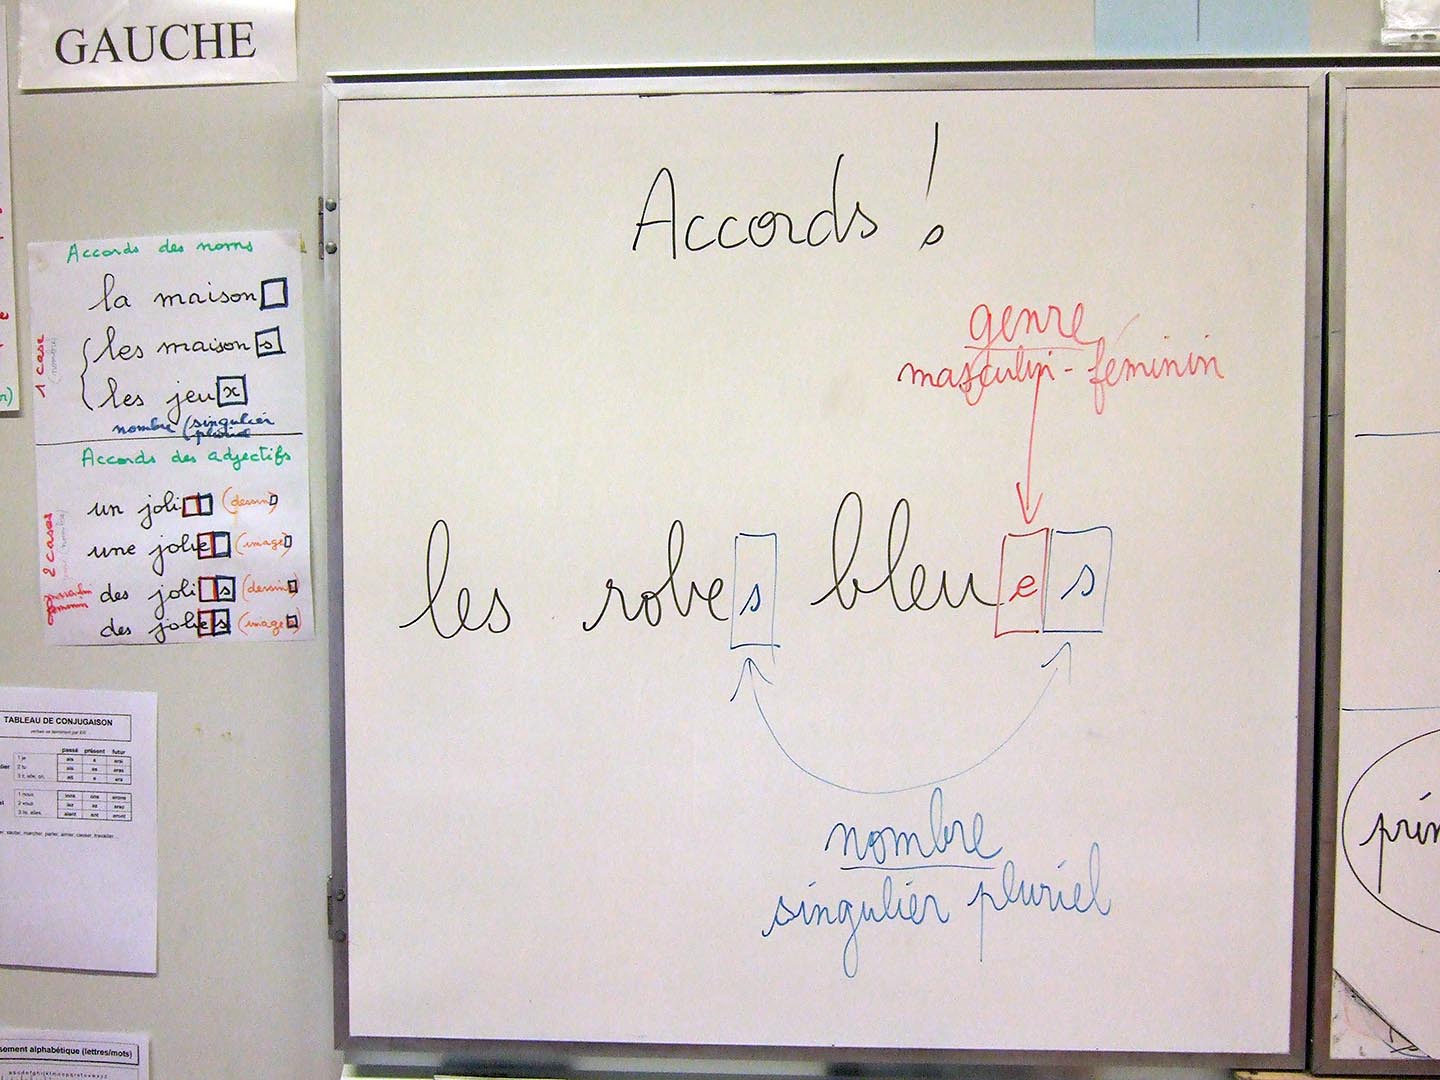 GAUCHE
Accords des noms
la maison
les maisons
les jeux
nombre (singulier
pluriel
1 case
(nombre)
Accords des adjectifs
un joli (dessin)
une jolie (image)
des jolis (dessins)
des jolies (images)
2 cases
masculin
féminin
TABLEAU DE CONJUGAISON
passé présent futur
1 je ais e erai
2 tu ais es eras
3 il, elle, on, ait e era
1 nous ions ons erons
2 vous iez ez erez
3 ils, elles, aient ent eront
sauter, marcher, parler, aimer, casser, travailler ...
sement alphabétique (lettres/mots)
Accords !
genre
masculin - féminin
les robes bleues
nombre
singulier pluriel
prin